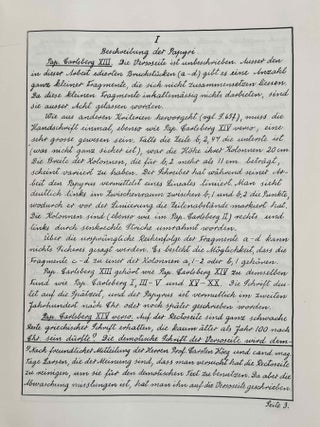 I
Beschreibung der Papyri
Pap. Carlsberg XIII. Die Versoseite ist unbeschrieben. Ausser den
in dieser Arbeit edierten Bruchstücken (a-d) gibt es eine Anzahl
ganz kleiner Fragmente, die sich nicht zusammensetzen liessen.
Da diese kleinen Fragmente inhaltsmässig nichts darbieten, sind
sie ausser Acht gelassen worden.
Wie aus anderen Kriterien hervorgeht (vgl. S. 67f.), muss die
Handschrift einmal, ebenso wie Pap. Carlsberg XIV verso, eine
sehr grosse gewesen sein. Falls die Zeile b, 2, 47 die unterste ist
(was nicht ganz sicher ist), war die Höhe ihrer Kolonnen 20 cm.
Die Breite der Kolonnen, die für b, 2 mehr als 11 cm beträgt,
scheint variiert zu haben. Der Schreiber hat während seiner Ar-
beit den Papyrus vermittelst eines Lineals liniiert. Man sieht
deutlich links im Zwischenraum zwischen b, 1 und b, 2 die Punkte,
wodurch er vor der Liniierung die Zeilenabstände markiert hat.
Die Kolonnen sind (ebenso wie im Pap. Carlsberg II) rechts und
links durch senkrechte Striche umrahmt worden.
Über die ursprüngliche Reihenfolge der Fragmente a-d kann
nichts Sicheres gesagt werden. Es besteht die Möglichkeit, dass die
Fragmente c-d zu einer der Kolonnen a, 1-2 oder b, 1 gehören.
Pap. Carlsberg XIII gehört wie Pap. Carlsberg XIV zu demselben
Fund wie Pap. Carlsberg I, III-V und XV-XX. Die Schrift deu-
tet auf die Spätzeit, und der Papyrus ist vermutlich im zweiten
Jahrhundert nach Chr. oder noch später geschrieben worden.
Pap. Carlsberg XIV verso. Auf der Rectoseite sind ganz schwache
Reste griechischer Schrift erhalten, die kaum älter als Jahr 100 nach
Chr. sein dürfte. Die demotische Schrift der Versoseite wird dem-
Nach freundlicher Mitteilung der Herren Prof. Carsten Höeg und cand. mag.
Tage Larsen, die der Meinung sind, dass man versucht hat die Rectoseite
zu reinigen, um sie für den demotischen Text zu benutzen. Da aber die
Abwaschung misslungen ist, hat man ihn auf die Versoseite geschrieben.
Seite 3.